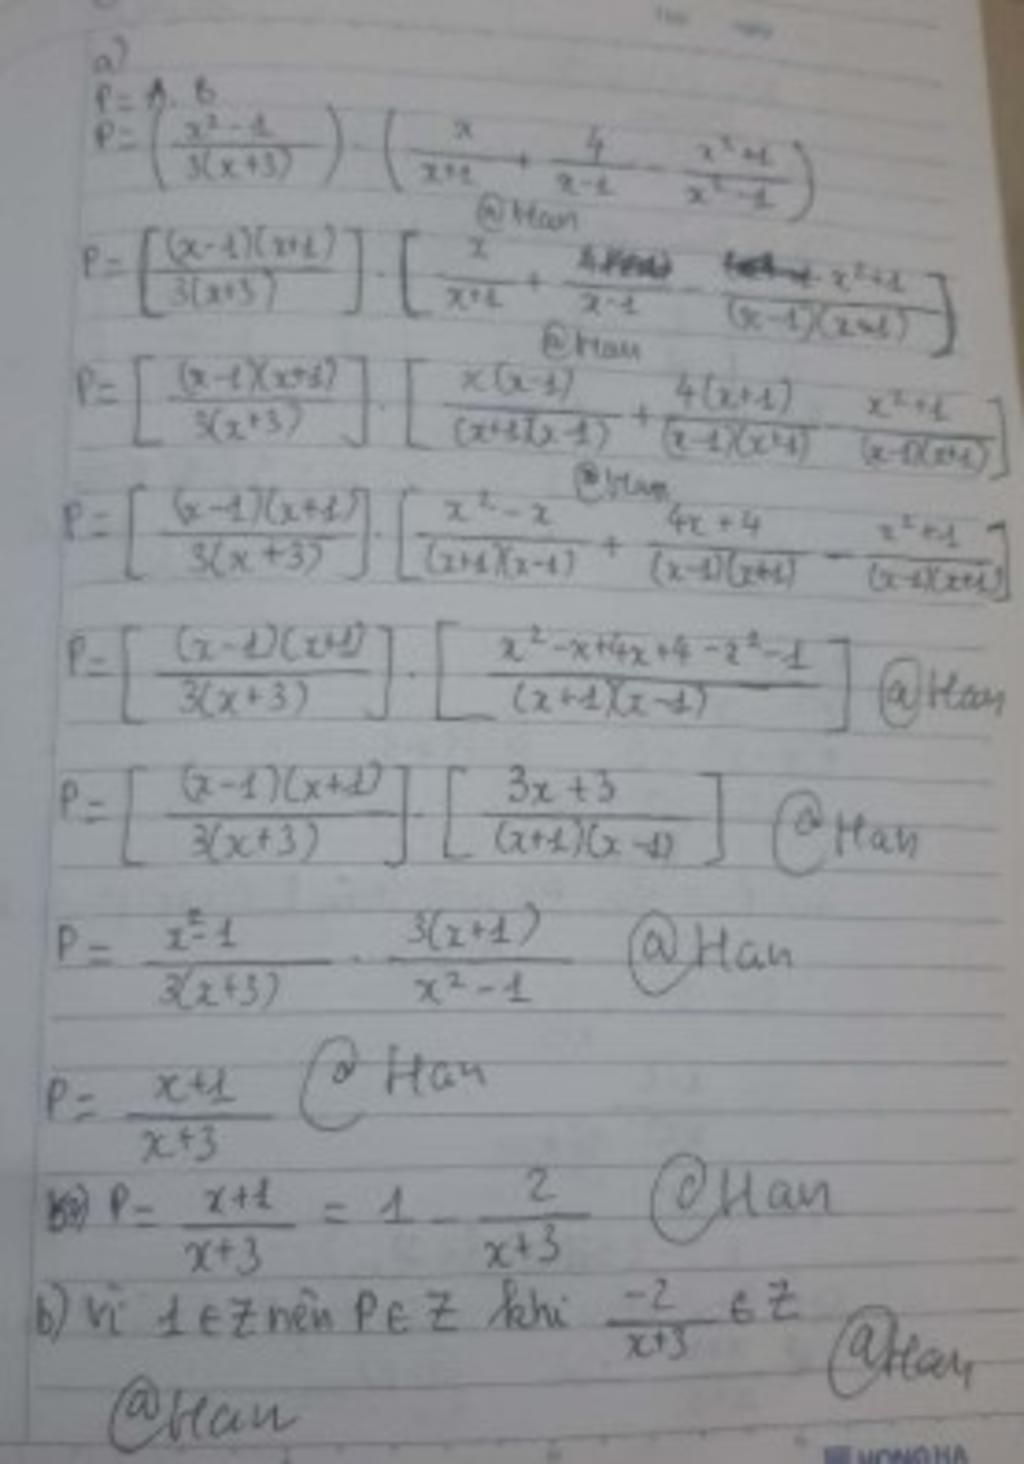 a)
P = A. B
P = ( x² - 1 / 3(x+3) ) . ( x / x+1 + 4 / x-1 - x²+1 / x²-1 )
@Han
P = [ (x-1)(x+1) / 3(x+3) ] . [ x / x+1 + / x-1 - x²+1 / (x-1)(x+1) ]
@Han
P = [ (x-1)(x+1) / 3(x+3) ] . [ x(x-1) / (x+1)(x-1) + 4(x+1) / (x-1)(x+1) - x²+1 / (x-1)(x+1) ]
@Han
P = [ (x-1)(x+1) / 3(x+3) ] . [ x² - x / (x+1)(x-1) + 4x+4 / (x-1)(x+1) - x²+1 / (x-1)(x+1) ]
P = [ (x-1)(x+1) / 3(x+3) ] . [ x² -x+4x+4 -x² -1 / (x+1)(x-1) ] @Han
P = [ (x-1)(x+1) / 3(x+3) ] . [ 3x+3 / (x+1)(x-1) ] @Han
P = x²-1 / 3(x+3) . 3(x+1) / x²-1 @Han
P = x+1 / x+3 @Han
P = x+1 / x+3 = 1 - 2 / x+3 @Han
b) Vì 1 ∈ Z nên P ∈ Z khi -2 / x+3 ∈ Z
@Han
@Han
HONG HA